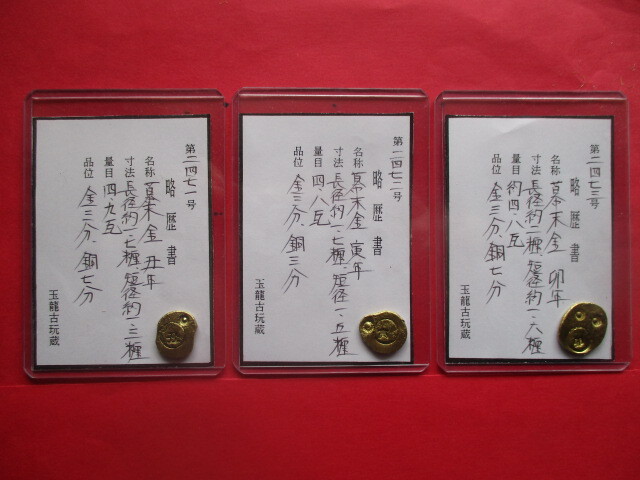 第二四七一号
略歴書
名称 幕末金 丑年
寸法 長径約一.七糎、短径約一.三糎
量目 四.九瓦
品位 金三分、銅七分
玉龍古玩蔵
第二四七二号
略歴書
名称 幕末金 寅年
寸法 長径約一.七糎、短径一.五糎
量目 四.八瓦
品位 金三分、銅三分
玉龍古玩蔵
第二四七三号
略歴書
名称 幕末金 卯年
寸法 長径約二糎、短径約一.六糎
量目 約四.八瓦
品位 金三分、銅七分
玉龍古玩蔵